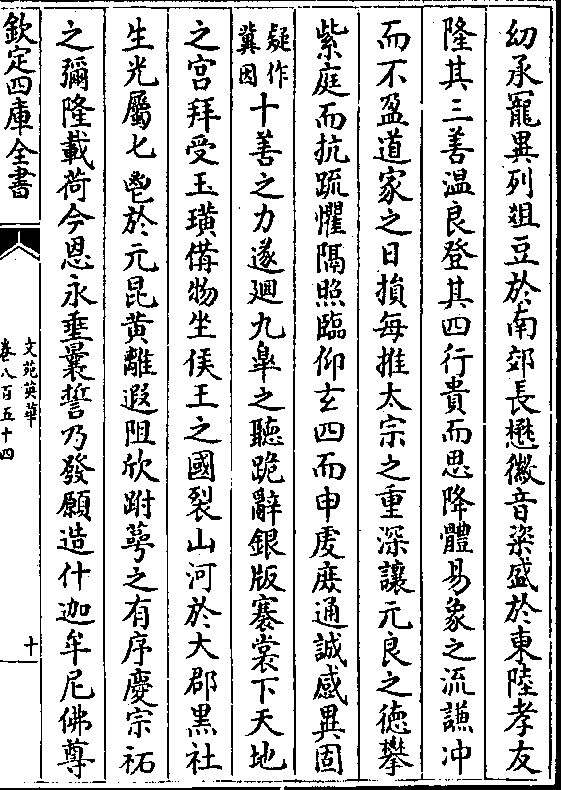 幼承寵異列俎豆於南郊長懋徽音粢盛於東陸孝友
隆其三善温良登其四行貴而思降體易象之流謙冲
而不盈道家之日損每推太宗之重深讓元良之徳攀
紫庭而抗䟽懼隔照臨仰玄四而申䖍庶通誠感異固
疑作
冀因
十善之力遂廻九臯之聽跪辭銀版褰裳下天地
之宫拜受玉璜備物坐侯王之國裂山河於大郡黒社
生光屬匕鬯於元昆黄離遐阻欣跗萼之有序慶宗祏
之彌隆載荷今恩永垂曩誓乃發願造什迦牟尼佛尊
欽定四庫全書
文苑英華
卷八百五十四
十